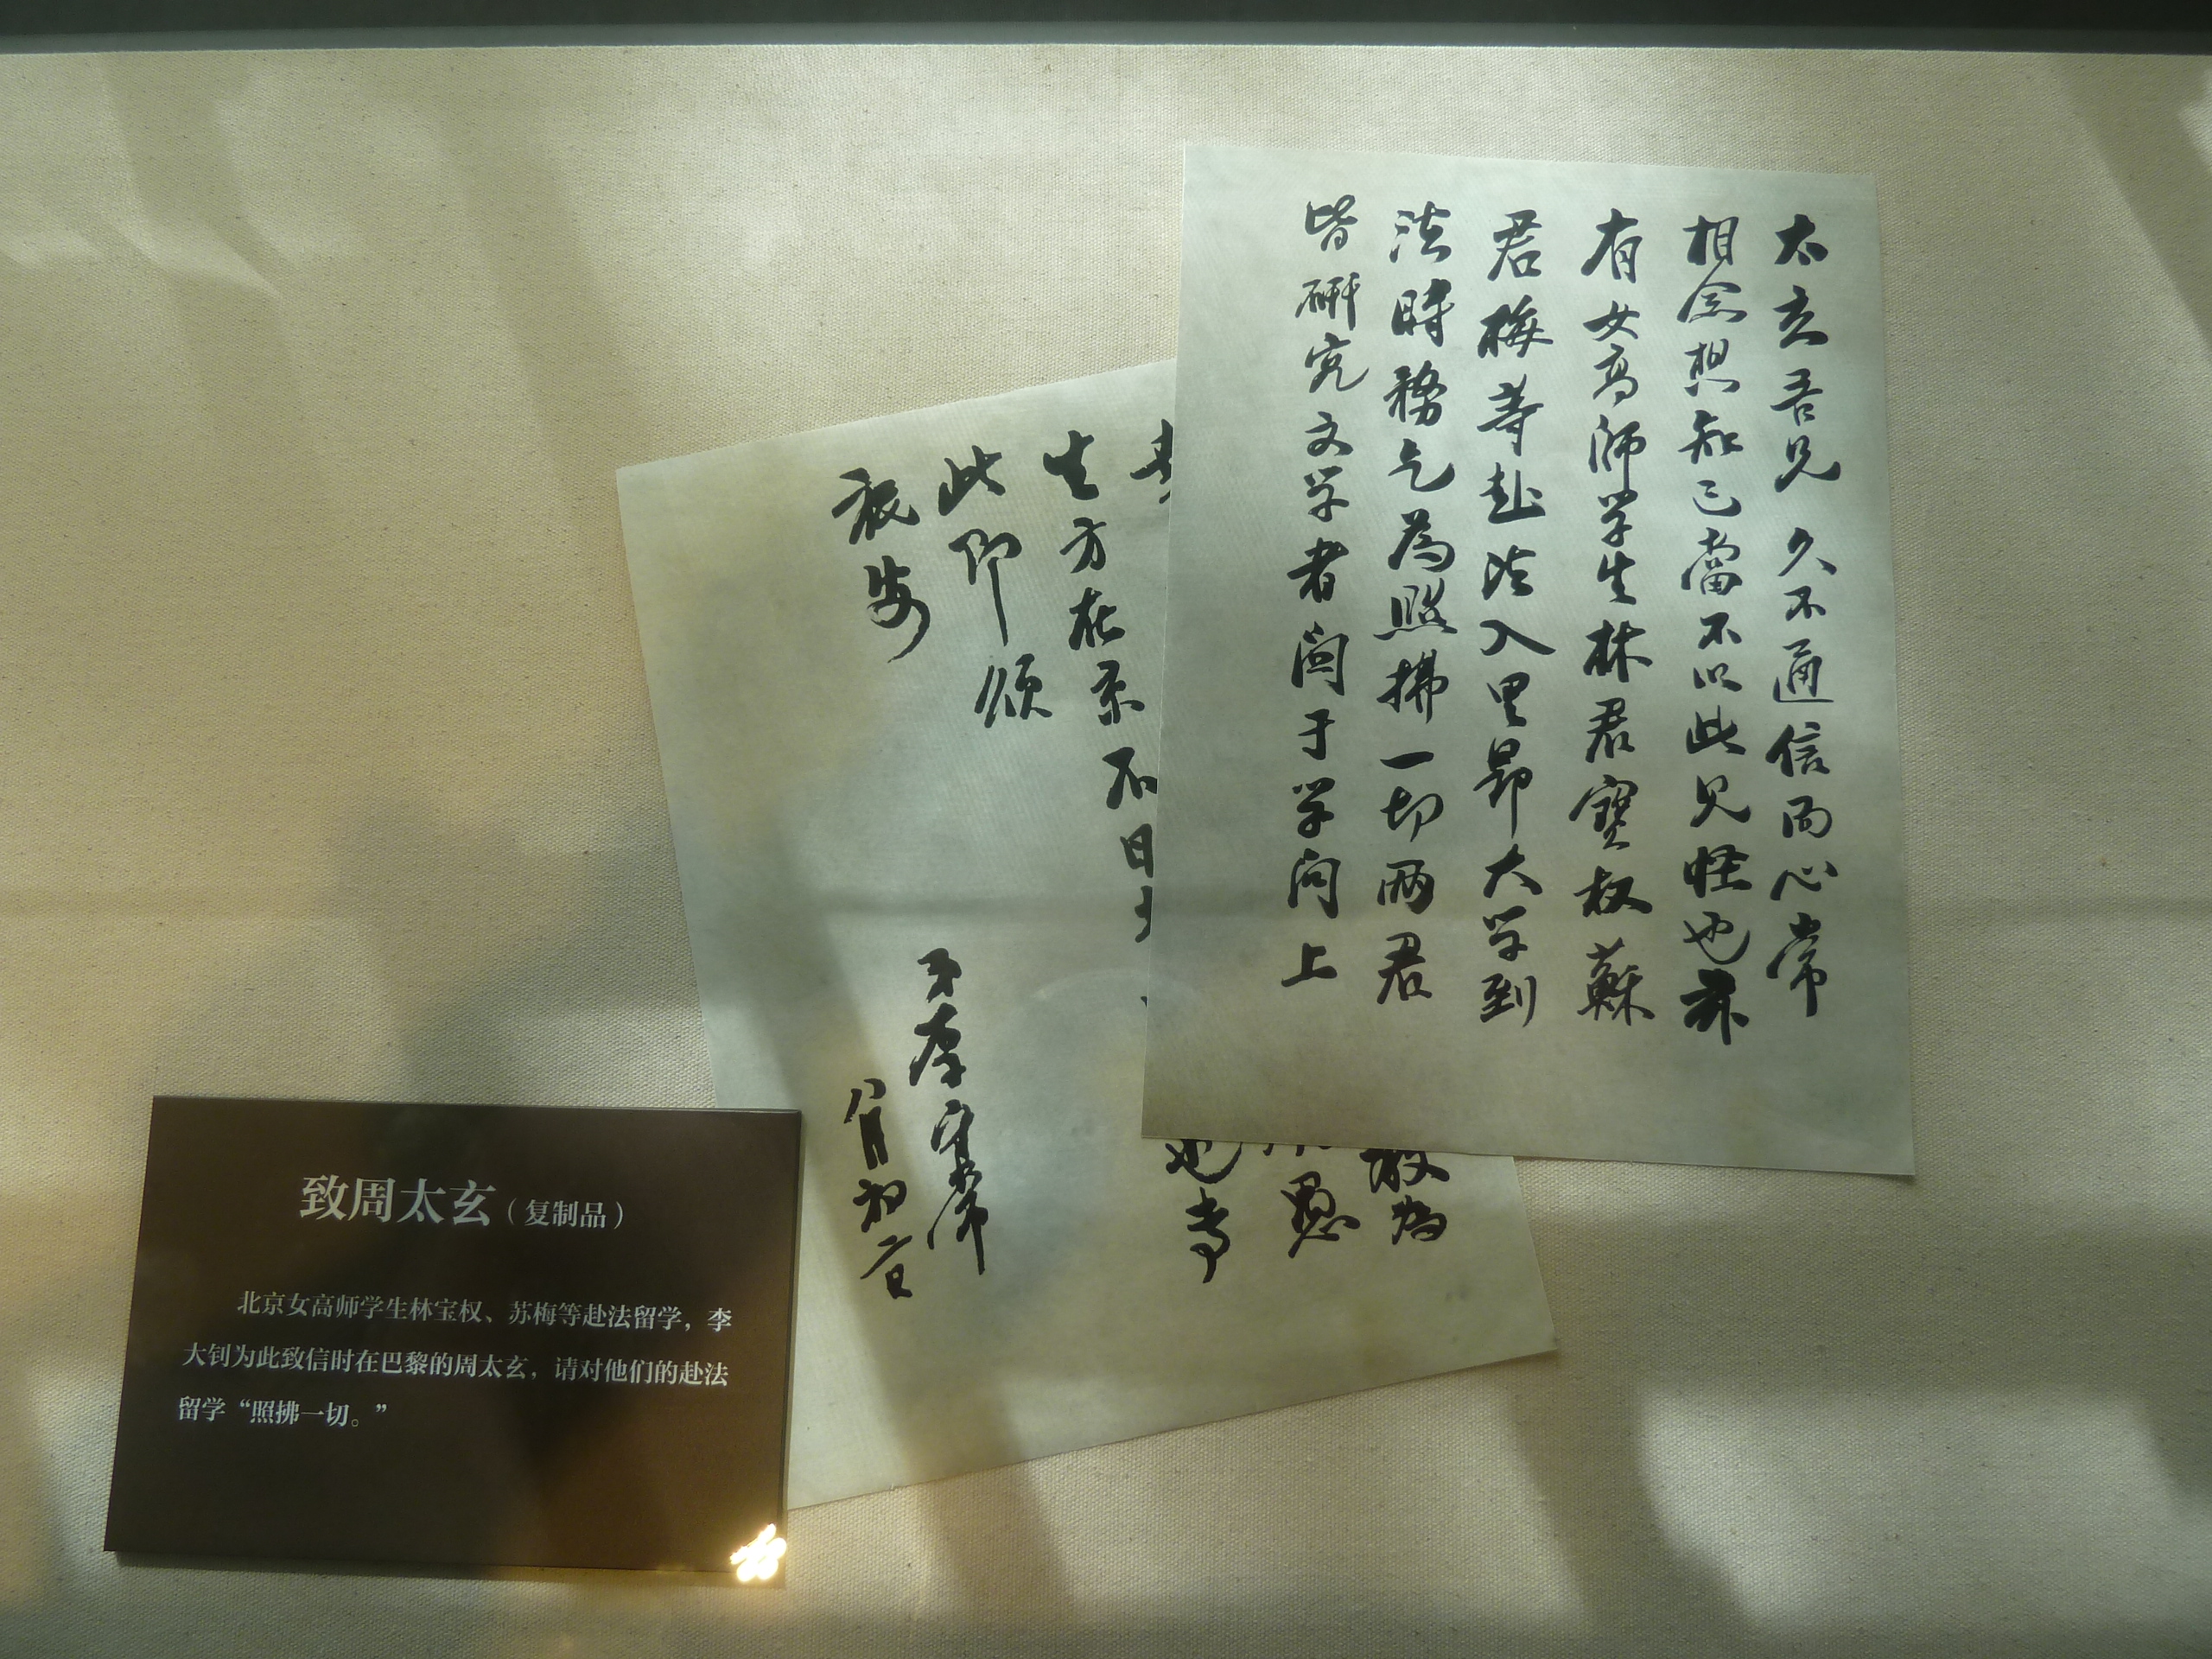 太玄吾兄 久不通信而心常
相念想知己當不以此見怪也茲
有女高師学生林君寶权蘇
君梅等赴法入里昂大学到
法時務乞為照拂一切兩君
皆研究文学者関于学问上
教為
愚
也专
生方在京不日
此即頌
旅安
弟李守常
八月初
致周太玄（复制品）
北京女高师学生林宝权、苏梅等赴法留学，李
大钊为此致信时在巴黎的周太玄，请对他们的赴法
留学“照拂一切。”